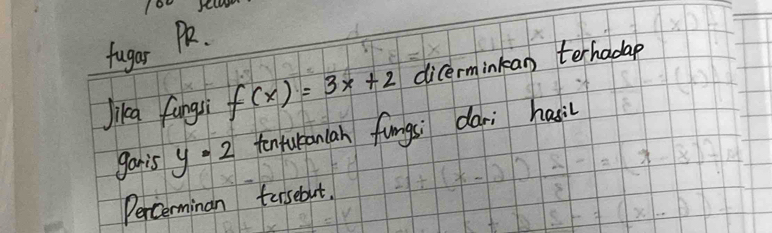 tugas PR.
Jika fungsi f(x) = 3x + 2 dicerminkan terhadap
garis y = 2 tentukanlah fungsi dari hasil
Percerminan tersebut.